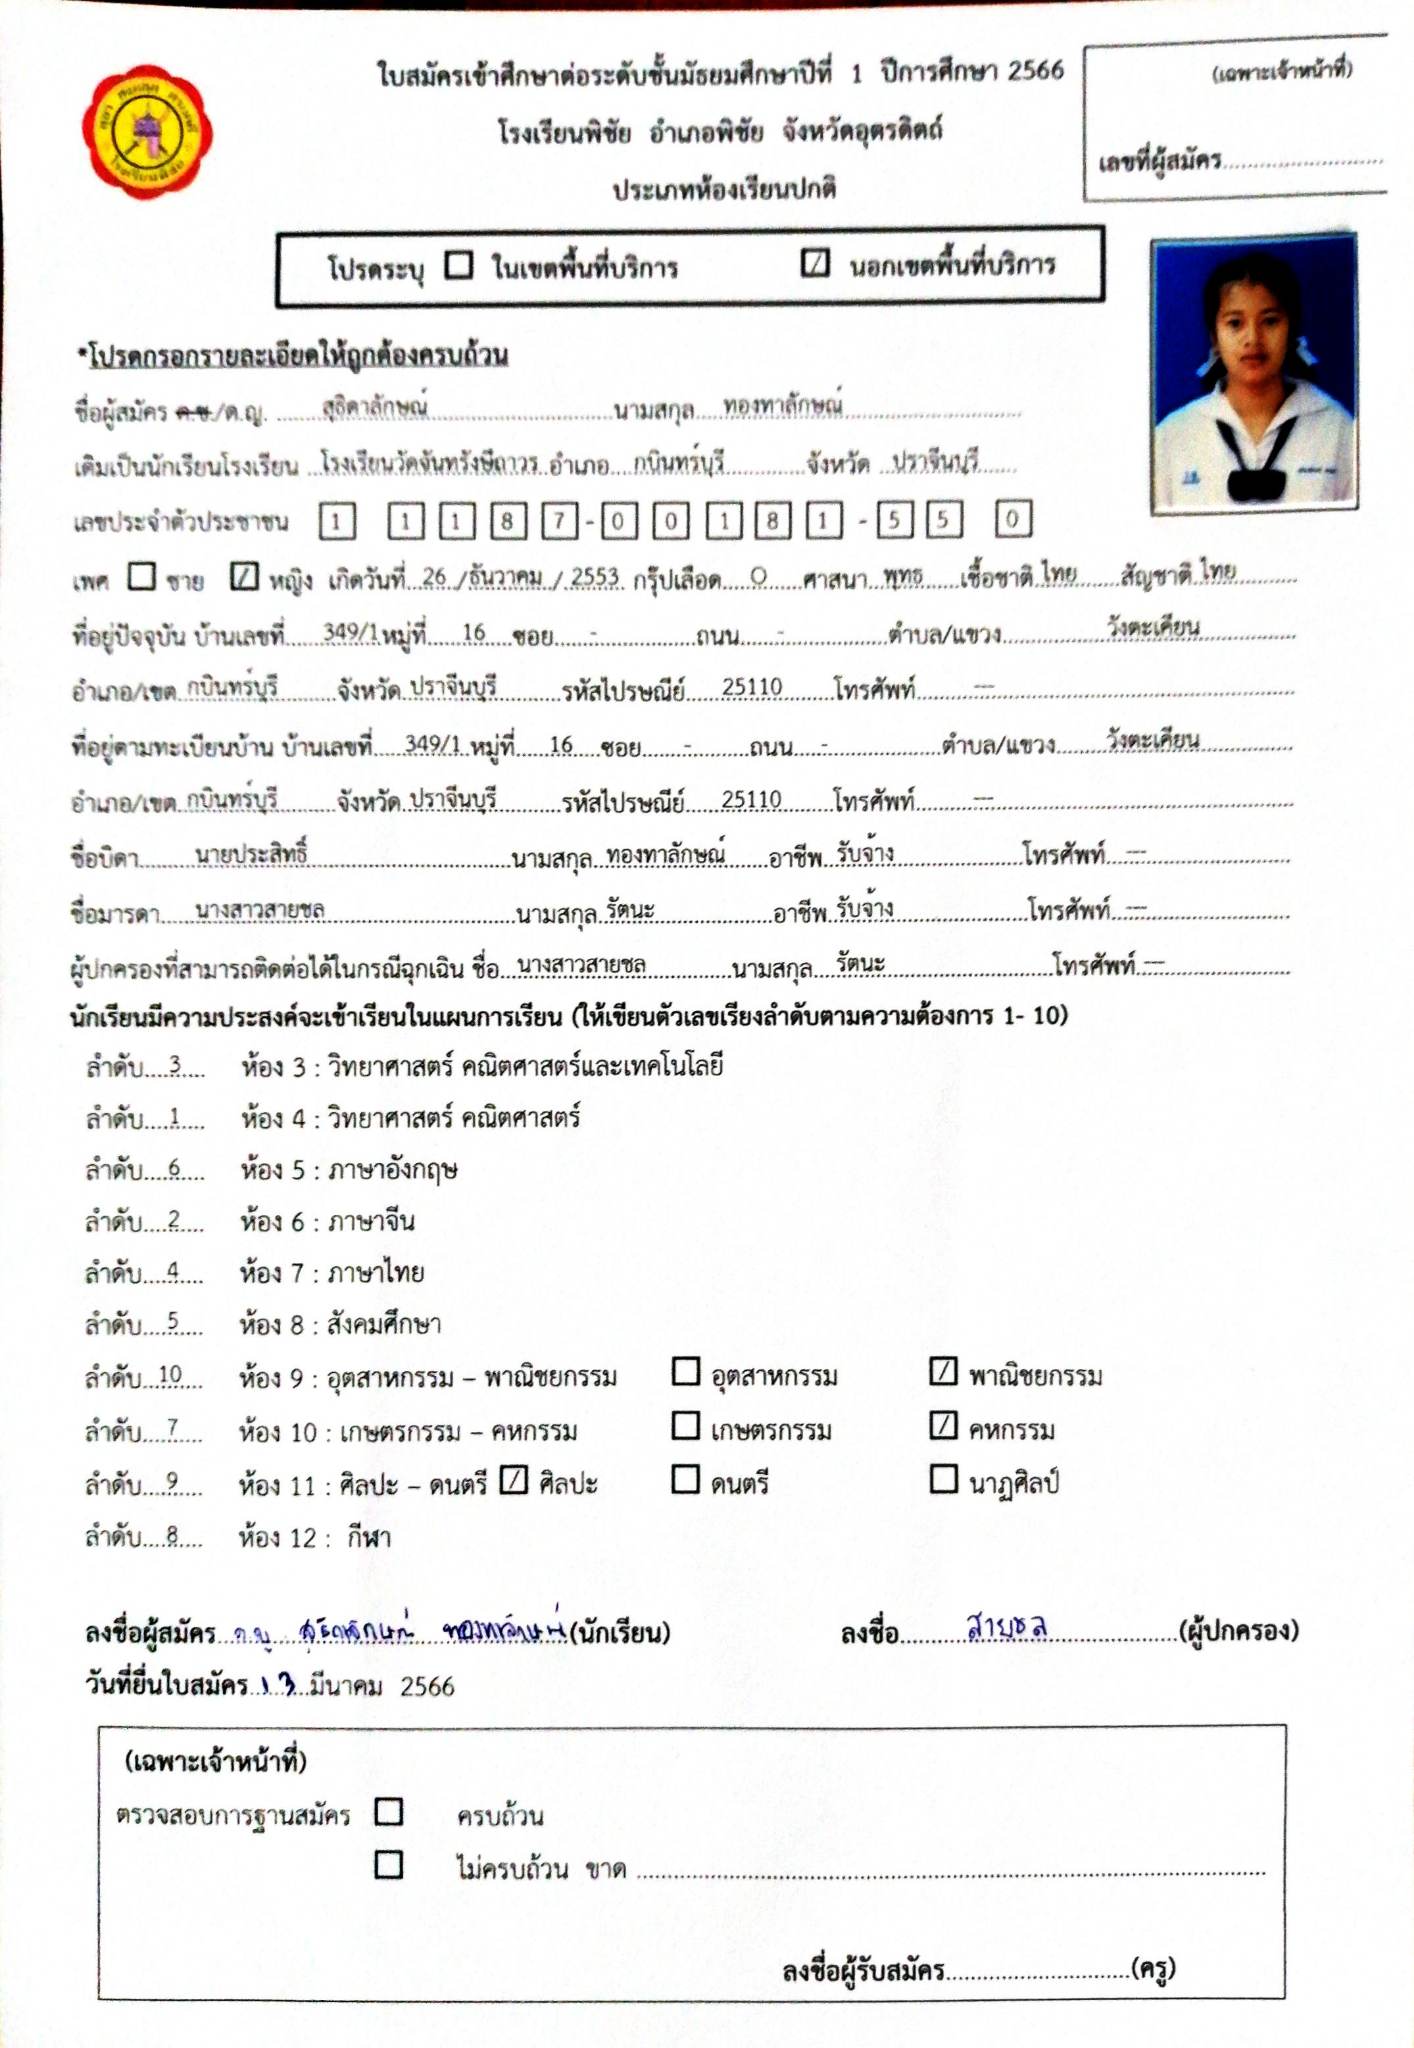 ใบสมัครเข้าศึกษาต่อระดับชั้นมัธยมศึกษาปีที่ 1 ปีการศึกษา 2566
(เฉพาะเจ้าหน้าที่)
โรงเรียนพิชัย อำเภอพิชัย จังหวัดอุตรดิตถ์
เลขที่ผู้สมัคร..........................
ประเภทห้องเรียนปกติ
โปรดระบุ ☐ ในเขตพื้นที่บริการ ☑ นอกเขตพื้นที่บริการ
*โปรดกรอกรายละเอียดให้ถูกต้องครบถ้วน
ชื่อผู้สมัคร ด.ช./ด.ญ. สุธิดาลักษณ์ นามสกุล ทองทาลักษณ์
เดิมเป็นนักเรียนโรงเรียน โรงเรียนวัดจันทรังษีถาวร อำเภอ กบินทร์บุรี จังหวัด ปราจีนบุรี
เลขประจำตัวประชาชน 1 1 1 8 7 - 0 0 1 8 1 - 5 5 0
เพศ ☐ ชาย ☑ หญิง เกิดวันที่ 26 / ธันวาคม / 2553 กรุ๊ปเลือด O ศาสนา พุทธ เชื้อชาติ ไทย สัญชาติ ไทย
ที่อยู่ปัจจุบัน บ้านเลขที่ 349/1 หมู่ที่ 16 ซอย - ถนน - ตำบล/แขวง วังตะเคียน
อำเภอ/เขต กบินทร์บุรี จังหวัด ปราจีนบุรี รหัสไปรษณีย์ 25110 โทรศัพท์ ---
ที่อยู่ตามทะเบียนบ้าน บ้านเลขที่ 349/1 หมู่ที่ 16 ซอย - ถนน - ตำบล/แขวง วังตะเคียน
อำเภอ/เขต กบินทร์บุรี จังหวัด ปราจีนบุรี รหัสไปรษณีย์ 25110 โทรศัพท์ ---
ชื่อบิดา นายประสิทธิ์ นามสกุล ทองทาลักษณ์ อาชีพ รับจ้าง โทรศัพท์ ---
ชื่อมารดา นางสาวสายชล นามสกุล รัตนะ อาชีพ รับจ้าง โทรศัพท์ ---
ผู้ปกครองที่สามารถติดต่อได้ในกรณีฉุกเฉิน ชื่อ นางสาวสายชล นามสกุล รัตนะ โทรศัพท์ ---
นักเรียนมีความประสงค์จะเข้าเรียนในแผนการเรียน (ให้เขียนตัวเลขเรียงลำดับตามความต้องการ 1- 10)
ลำดับ 3 ห้อง 3 : วิทยาศาสตร์ คณิตศาสตร์และเทคโนโลยี
ลำดับ 1 ห้อง 4 : วิทยาศาสตร์ คณิตศาสตร์
ลำดับ 6 ห้อง 5 : ภาษาอังกฤษ
ลำดับ 2 ห้อง 6 : ภาษาจีน
ลำดับ 4 ห้อง 7 : ภาษาไทย
ลำดับ 5 ห้อง 8 : สังคมศึกษา
ลำดับ 10 ห้อง 9 : อุตสาหกรรม – พาณิชยกรรม ☐ อุตสาหกรรม ☑ พาณิชยกรรม
ลำดับ 7 ห้อง 10 : เกษตรกรรม – คหกรรม ☐ เกษตรกรรม ☑ คหกรรม
ลำดับ 9 ห้อง 11 : ศิลปะ – ดนตรี ☑ ศิลปะ ☐ ดนตรี ☐ นาฏศิลป์
ลำดับ 8 ห้อง 12 : กีฬา
ลงชื่อผู้สมัคร ด.ญ. สุธิดาลักษณ์ ทองทาลักษณ์ (นักเรียน) ลงชื่อ สายชล (ผู้ปกครอง)
วันที่ยื่นใบสมัคร 13 มีนาคม 2566
(เฉพาะเจ้าหน้าที่)
ตรวจสอบการฐานสมัคร ☐ ครบถ้วน
☐ ไม่ครบถ้วน ขาด ..........................
ลงชื่อผู้รับสมัคร..........................(ครู)